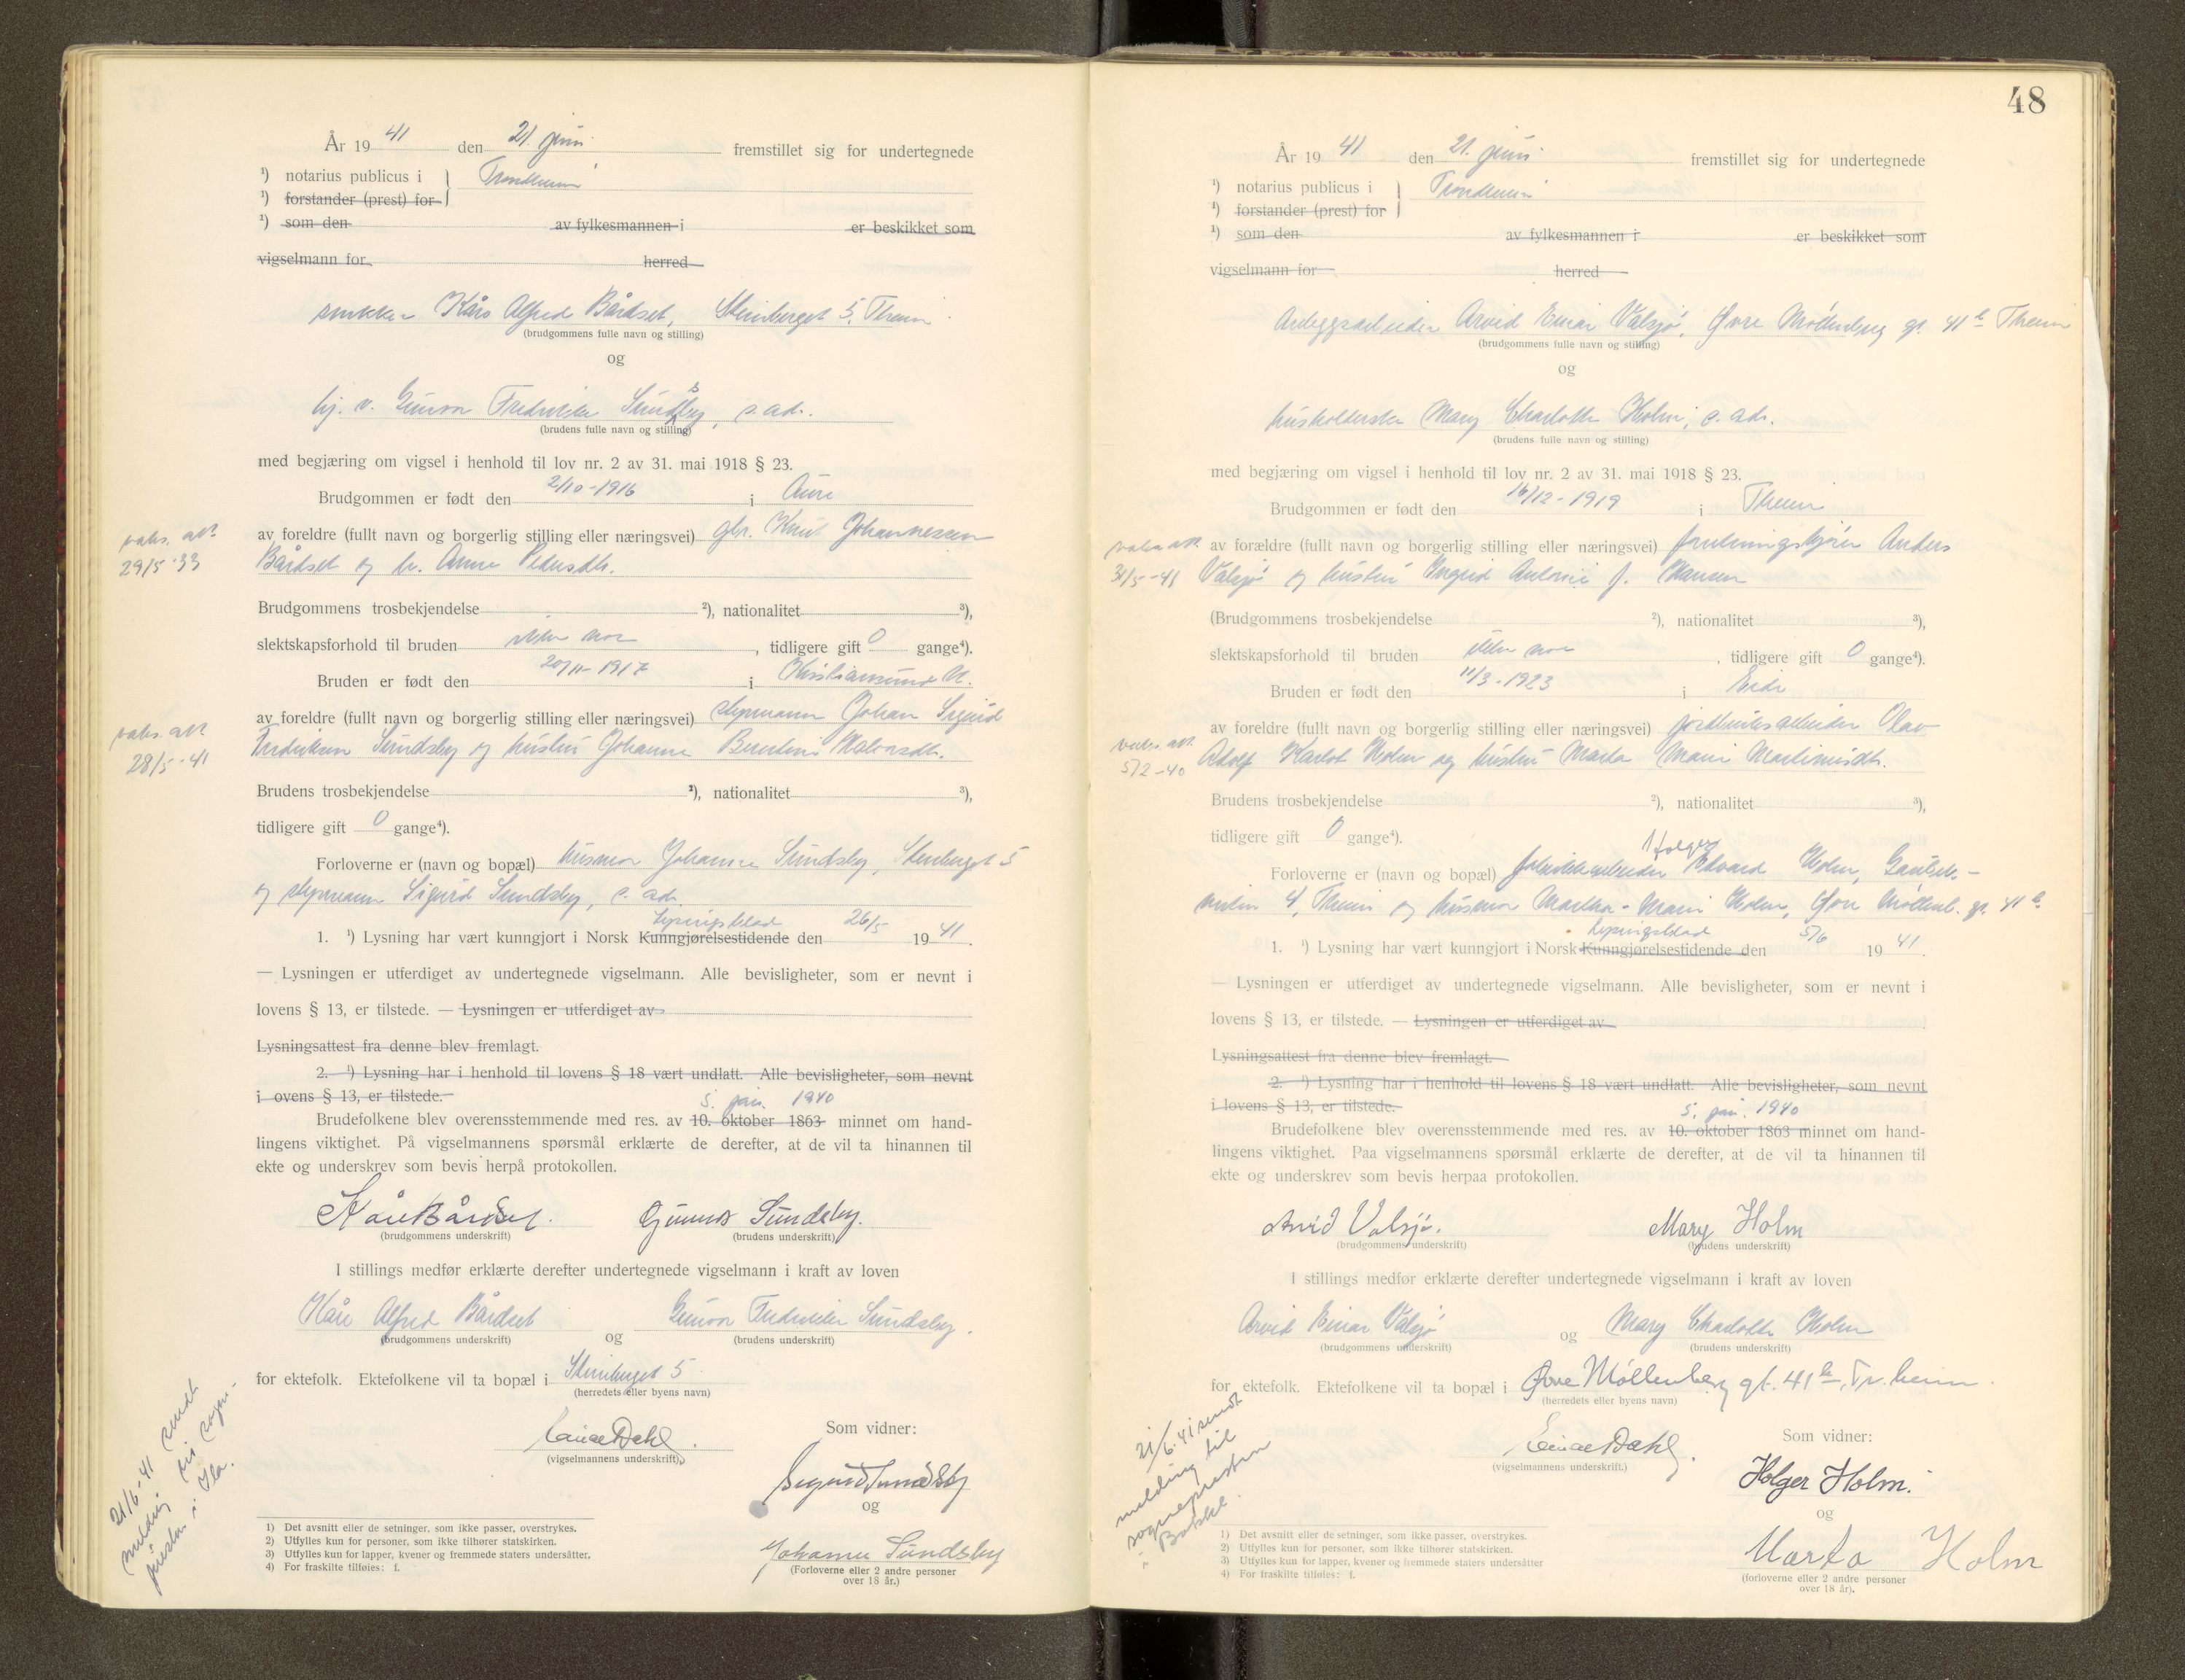 År 19 41 den 21. juni fremstillet sig for undertegnede
¹) notarius publicus i Trondheim
¹) forstander (prest) for
¹) som den av fylkesmannen i er beskikket som
vigselmann for herred
snekker Kåre Alfred Bårdset, Steinberget 5, Theim
(brudgommens fulle navn og stilling)
og
hj. v. Gunvor Fredrikke Sundsby, s. adr.
(brudens fulle navn og stilling)
med begjæring om vigsel i henhold til lov nr. 2 av 31. mai 1918 § 23.
Brudgommen er født den 2/10-1916 i Aure
vaks. att. 29/5-33
av foreldre (fullt navn og borgerlig stilling eller næringsvei) gbr. Knut Johannessen
Bårdset og h. Anne Pedersdtr.
Brudgommens trosbekjendelse ²), nationalitet ³),
slektskapsforhold til bruden , tidligere gift 0 gange⁴).
Bruden er født den 20/11-1917 i Kristiansund N.
vaks. att. 28/5-41
av foreldre (fullt navn og borgerlig stilling eller næringsvei) styrmann Johan Sigurd
Fredriksen Sundsby og hustru Johanne Berntine Halvorsdtr.
Brudens trosbekjendelse ²), nationalitet ³),
tidligere gift 0 gange⁴).
Forloverne er (navn og bopæl) husmor Johanne Sundsby, Steinberget 5
og styrmann Sigurd Sundsby, s. adr.
Lysningsblad
1. ¹) Lysning har vært kunngjort i Norsk Kunngjørelsestidende den 26/5 19 41.
— Lysningen er utferdiget av undertegnede vigselmann. Alle bevisligheter, som er nevnt i
lovens § 13, er tilstede. — Lysningen er utferdiget av
Lysningsattest fra denne blev fremlagt.
2. ¹) Lysning har i henhold til lovens § 18 vært undlatt. Alle bevisligheter, som nevnt
i ovens § 13, er tilstede.
5. jan. 1940
Brudefolkene blev overensstemmende med res. av 10. oktober 1863 minnet om hand-
lingens viktighet. På vigselmannens spørsmål erklærte de derefter, at de vil ta hinannen til
ekte og underskrev som bevis herpå protokollen.
Kåre Bårdset. Gunvor Sundsby.
(brudgommens underskrift) (brudens underskrift)
I stillings medfør erklærte derefter undertegnede vigselmann i kraft av loven
Kåre Alfred Bårdset og Gunvor Fredrikke Sundsby.
(brudgommens underskrift) (brudens underskrift)
for ektefolk. Ektefolkene vil ta bopæl i Steinberget 5
(herredets eller byens navn)
Einar Dahl.
(vigselmannens underskrift)
Som vidner:
Sigurd Sundsby
og
Johanne Sundsby
(Forloverne eller 2 andre personer
over 18 år.)
21/6-41 sendt
melding til sogne-
presten i Ila.
1) Det avsnitt eller de setninger, som ikke passer, overstrykes.
2) Utfylles kun for personer, som ikke tilhører statskirken.
3) Utfylles kun for lapper, kvener og fremmede staters undersåtter.
4) For fraskilte tilføies: f.
48
År 19 41 den 21. juni fremstillet sig for undertegnede
¹) notarius publicus i Trondheim
¹) forstander (prest) for
¹) som den av fylkesmannen i er beskikket som
vigselmann for herred
Anleggsarbeider Arvid Einar Valsjö, Øvre Möllenberg gt. 41 b Theim
(brudgommens fulle navn og stilling)
og
husholderske Mary Charlotte Holm, s. adr.
(brudens fulle navn og stilling)
med begjæring om vigsel i henhold til lov nr. 2 av 31. mai 1918 § 23.
Brudgommen er født den 16/12-1919 i Theim
vaks. att. 31/5-41
av forældre (fullt navn og borgerlig stilling eller næringsvei) Anders
Valsjö og hustru Ingrid Antonie f. Hansen
(Brudgommens trosbekjendelse ²), nationalitet ³),
slektskapsforhold til bruden , tidligere gift 0 gange⁴).
Bruden er født den 11/3-1923 i Eide
vaks. att. 5/2-40
av foreldre (fullt navn og borgerlig stilling eller næringsvei) jordbruksarbeider Olav
Adolf Karlot Holm og hustru Marta Marie Martinusdtr.
Brudens trosbekjendelse ²), nationalitet ³),
tidligere gift 0 gange⁴).
Holger
Forloverne er (navn og bopæl) fabrikkarbeider Edvard Holm,
4, Theim og husmor Martha Marie Holm, Øvre Möllenb. gt. 41 b.
Lysningsblad
1. ¹) Lysning har vært kunngjort i Norsk Kunngjørelsestidende den 5/6 19 41.
— Lysningen er utferdiget av undertegnede vigselmann. Alle bevisligheter, som er nevnt i
lovens § 13, er tilstede. — Lysningen er utferdiget av
Lysningsattest fra denne blev fremlagt.
2. ¹) Lysning har i henhold til lovens § 18 vært undlatt. Alle bevisligheter, som nevnt
i lovens § 13, er tilstede.
5. jan. 1940
Brudefolkene blev overensstemmende med res. av 10. oktober 1863 minnet om hand-
lingens viktighet. Paa vigselmannens spørsmål erklærte de derefter, at de vil ta hinannen til
ekte og underskrev som bevis herpaa protokollen.
Arvid Valsjö. Mary Holm
(brudgommens underskrift) (brudens underskrift)
I stillings medfør erklærte derefter undertegnede vigselmann i kraft av loven
Arvid Einar Valsjö og Mary Charlotte Holm
(brudgommens underskrift) (brudens underskrift)
for ektefolk. Ektefolkene vil ta bopæl i Øvre Möllenberg gt. 41 b, Tr.heim.
(herredets eller byens navn)
Einar Dahl.
(vigselmannens underskrift.)
Som vidner:
Holger Holm.
og
Marta Holm
(forloverne eller 2 andre personer
over 18 år).
21/6.41 sendt
melding til
sognepresten
i Bakke.
1) Det avsnitt eller de setninger, som ikke passer, overstrykes.
2) Utfylles kun for personer, som ikke tilhører statskirken.
3) Utfylles kun for lapper, kvener og fremmede staters undersåtter
4) For fraskilte tilføies: f.